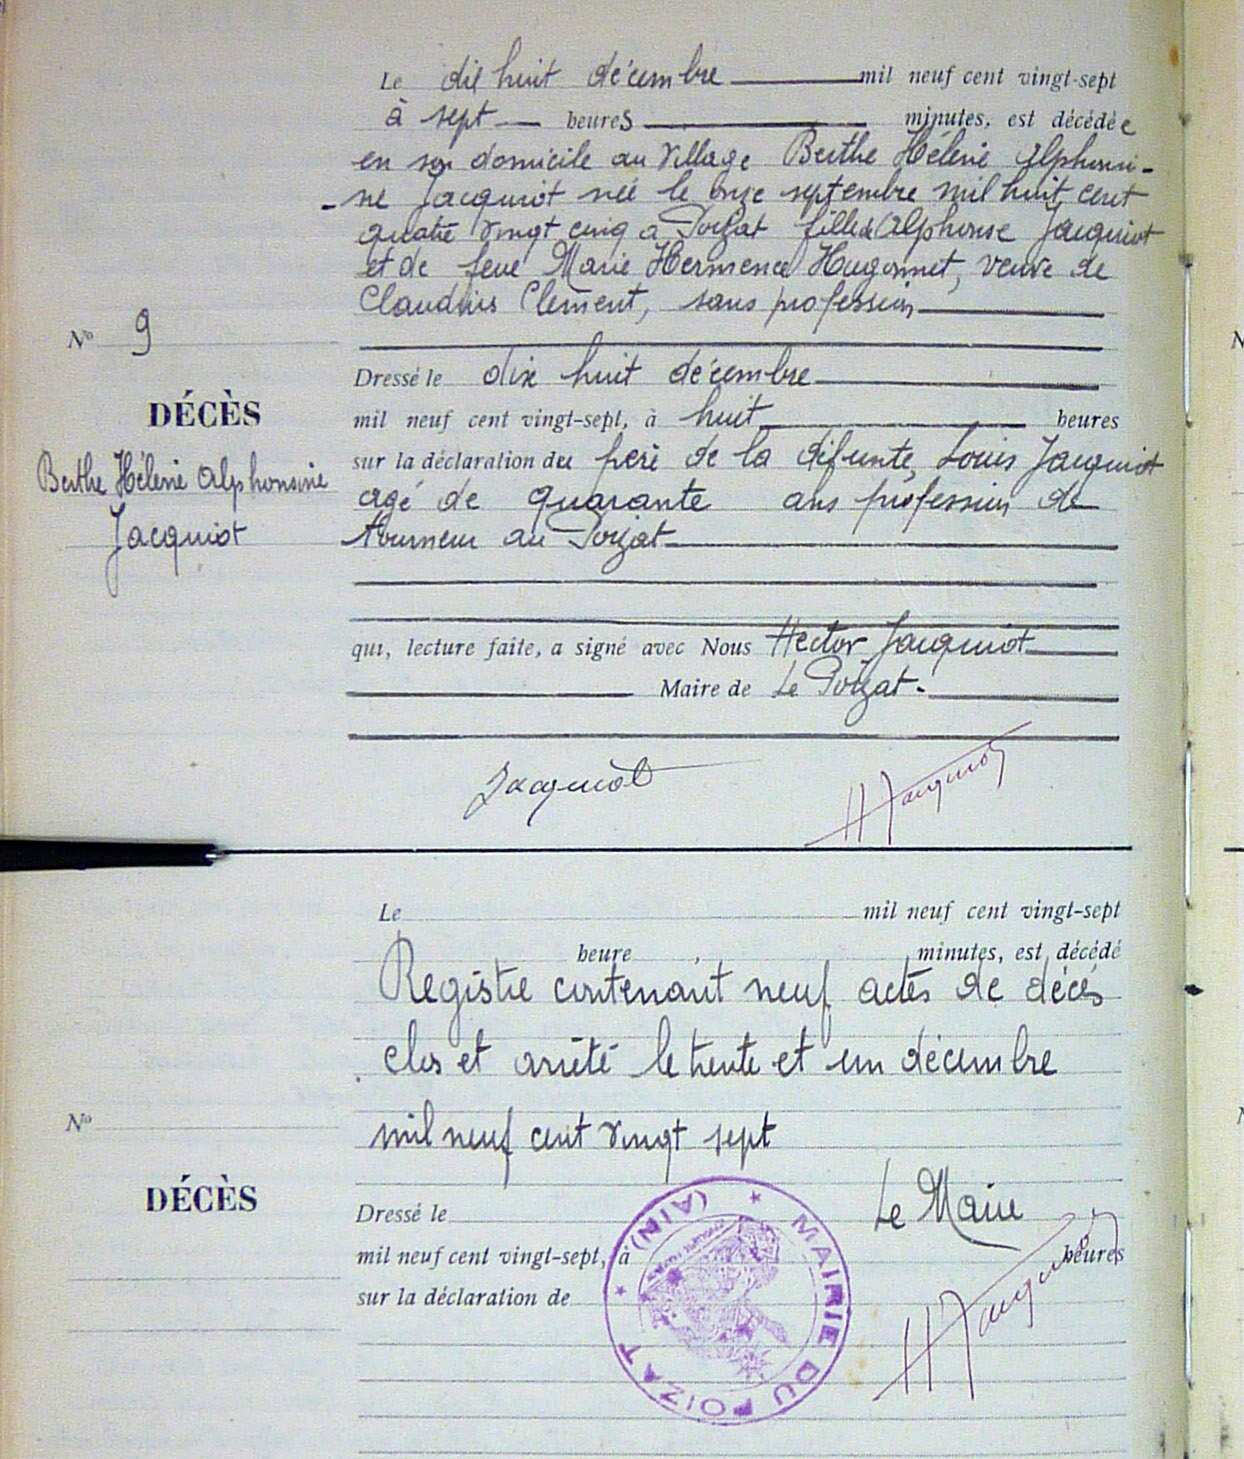 Le dix huit décembre mil neuf cent vingt-sept
à sept heures minutes, est décédée
en son domicile au Village Berthe Hélène Alphonsi-
-ne Jacquiot née le onze septembre mil huit cent
quatre vingt cinq à Poizat fille de Alphonse Jacquiot
et de feue Marie Hermence Hugonnet, veuve de
Claudius Clement, sans profession
No 9
DÉCÈS
Berthe Hélène Alphonsine
Jacquiot
Dressé le dix huit décembre
mil neuf cent vingt-sept, à huit heures
sur la déclaration du père de la défunte, Louis Jacquiot
agé de quarante ans profession de
tourneur au Poizat
qui, lecture faite, a signé avec Nous Hector Jacquiot
Maire de Le Poizat.
Jacquiot
H Jacquiot
Le mil neuf cent vingt-sept
heure minutes, est décédé
Registre contenant neuf actes de décès
clos et arrêté le trente et un décembre
mil neuf cent vingt sept
No
DÉCÈS
Le Maire
Dressé le
mil neuf cent vingt-sept, à heures
sur la déclaration de
H Jacquiot
MAIRIE DU POIZAT
(AIN)